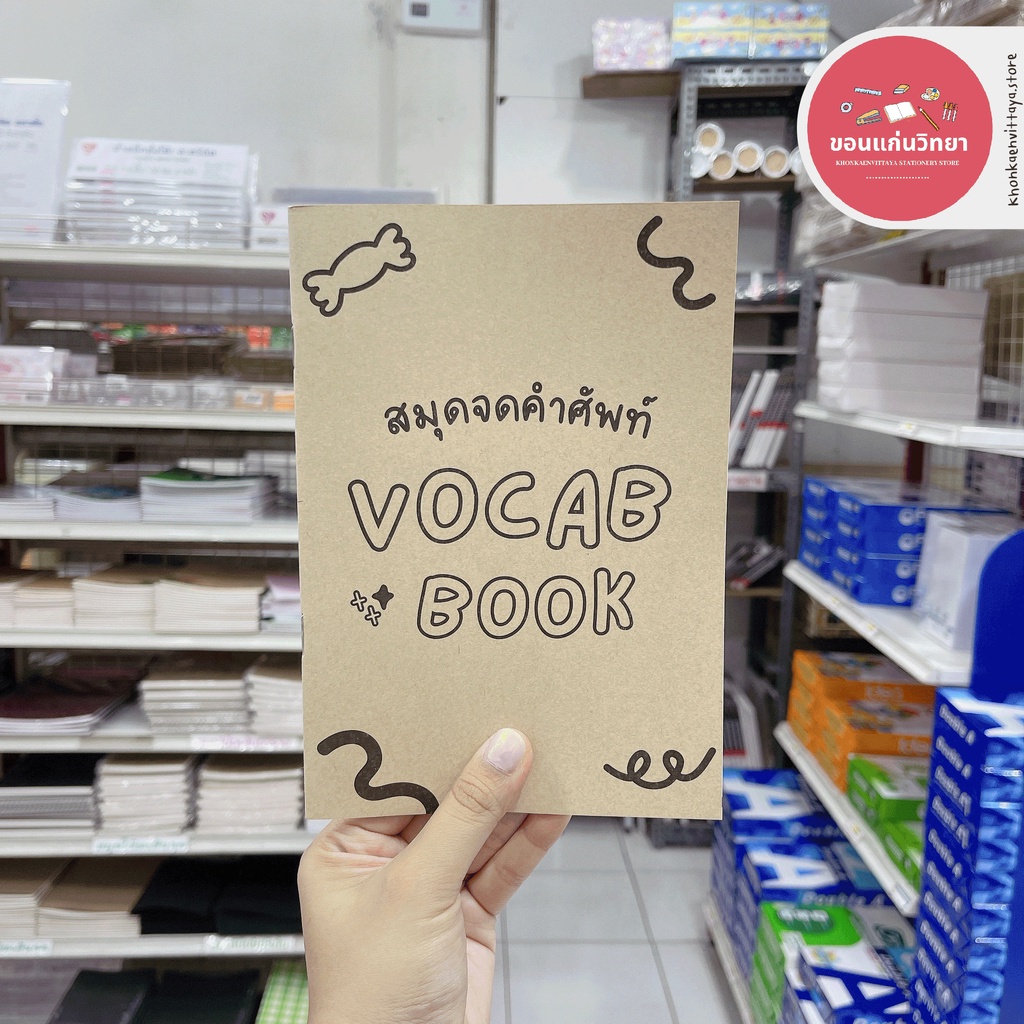 ขอนแก่นวิทยา
KHONKAENVITTAYA STATIONERY STORE
khonkaenvittaya.store
สมุดจดคำศัพท์
VOCAB
BOOK
Double A